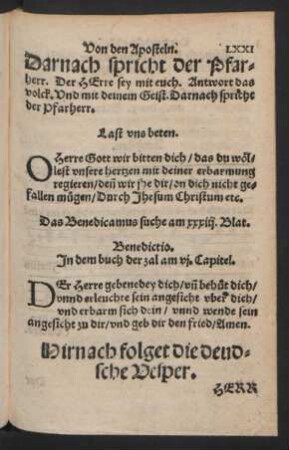 Von den Aposteln. LXXI
Darnach spricht der Pfar-
herr. Der HErre sey mit euch. Antwort das
volck. Vnd mit deinem Geist. Darnach spricht
der Pfarherr.
Last vns beten.
O Herre Gott wir bitten dich / das du wöl-
lest vnsere hertzen mit deiner erbarmung
regieren / deñ wir ye dir / on dich nicht ge-
fallen mügen / Durch Jhesum Christum etc.
Das Benedicamus suche am xxxiiij. Blat.
Benedictio.
In dem buch der zal am vj. Capitel.
DEr Herre gebenedey dich / vñ behüt dich /
vnnd erleuchte sein angesicht vber dich /
vnd erbarm sich dein / vnnd wende sein
angesicht zu dir / vnd geb dir den fried / Amen.
Hirnach folget die deud-
sche Vesper.
HERR